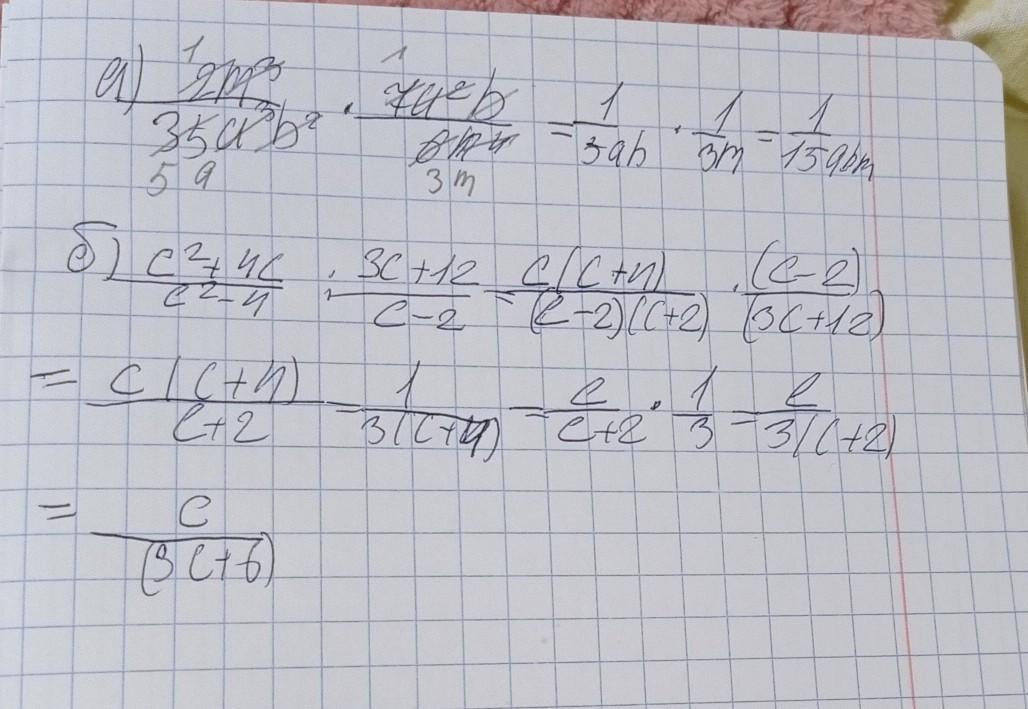 а) 2m³/35a³b² · 7a²b/6m⁴ = 1/5ab · 1/3m = 1/15abm
1 1
5 a 3m
б) c²+4c/c²-4 : 3c+12/c-2 = c(c+4)/(c-2)(c+2) · (c-2)/(3c+12)
= c(c+4)/c+2 - 1/3(c+4) = c/c+2 · 1/3 = c/3(c+2)
= c/(3c+6)